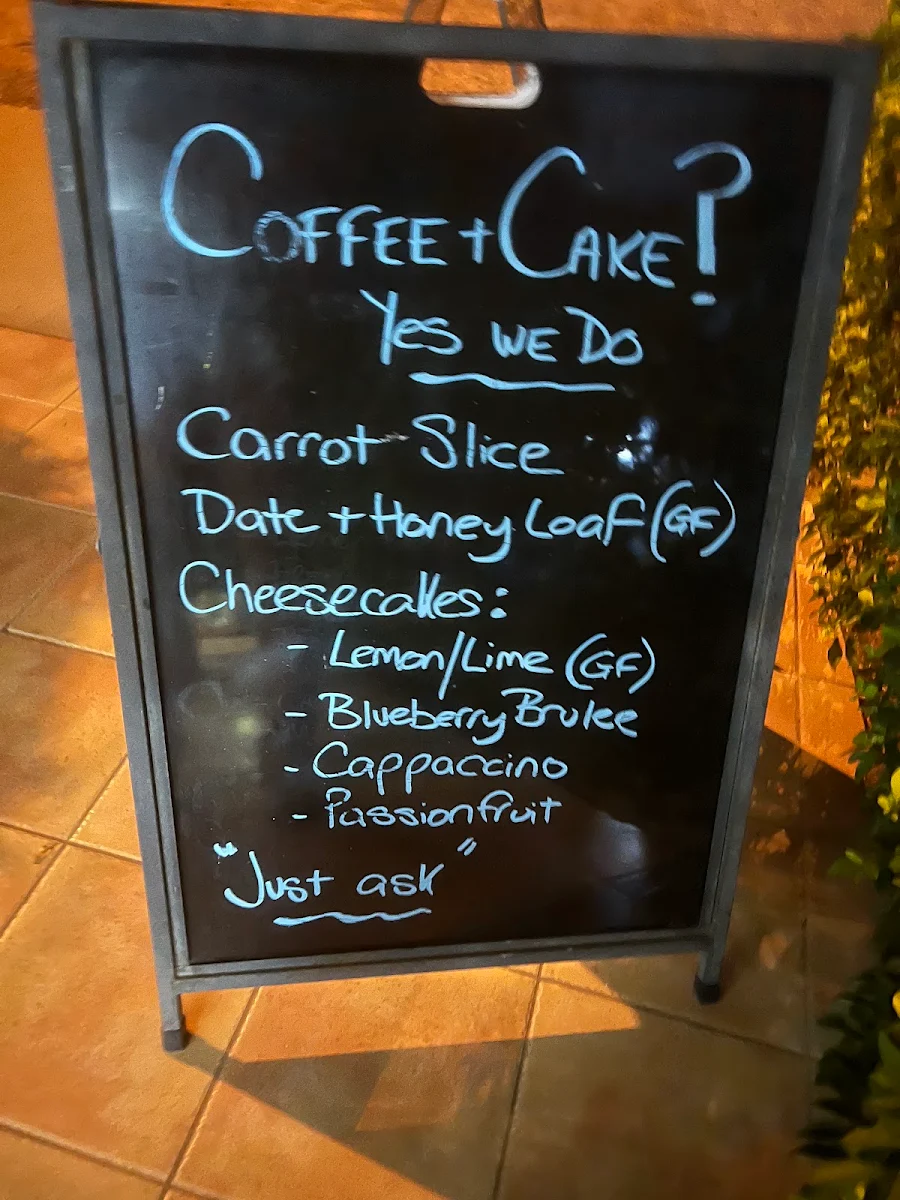 COFFEE + CAKE?
Yes WE DO
Carrot Slice
Date + Honey Loaf (GF)
Cheesecakes:
- Lemon/Lime (GF)
- Blueberry Brulee
- Cappaccino
- Passionfruit
"Just ask"